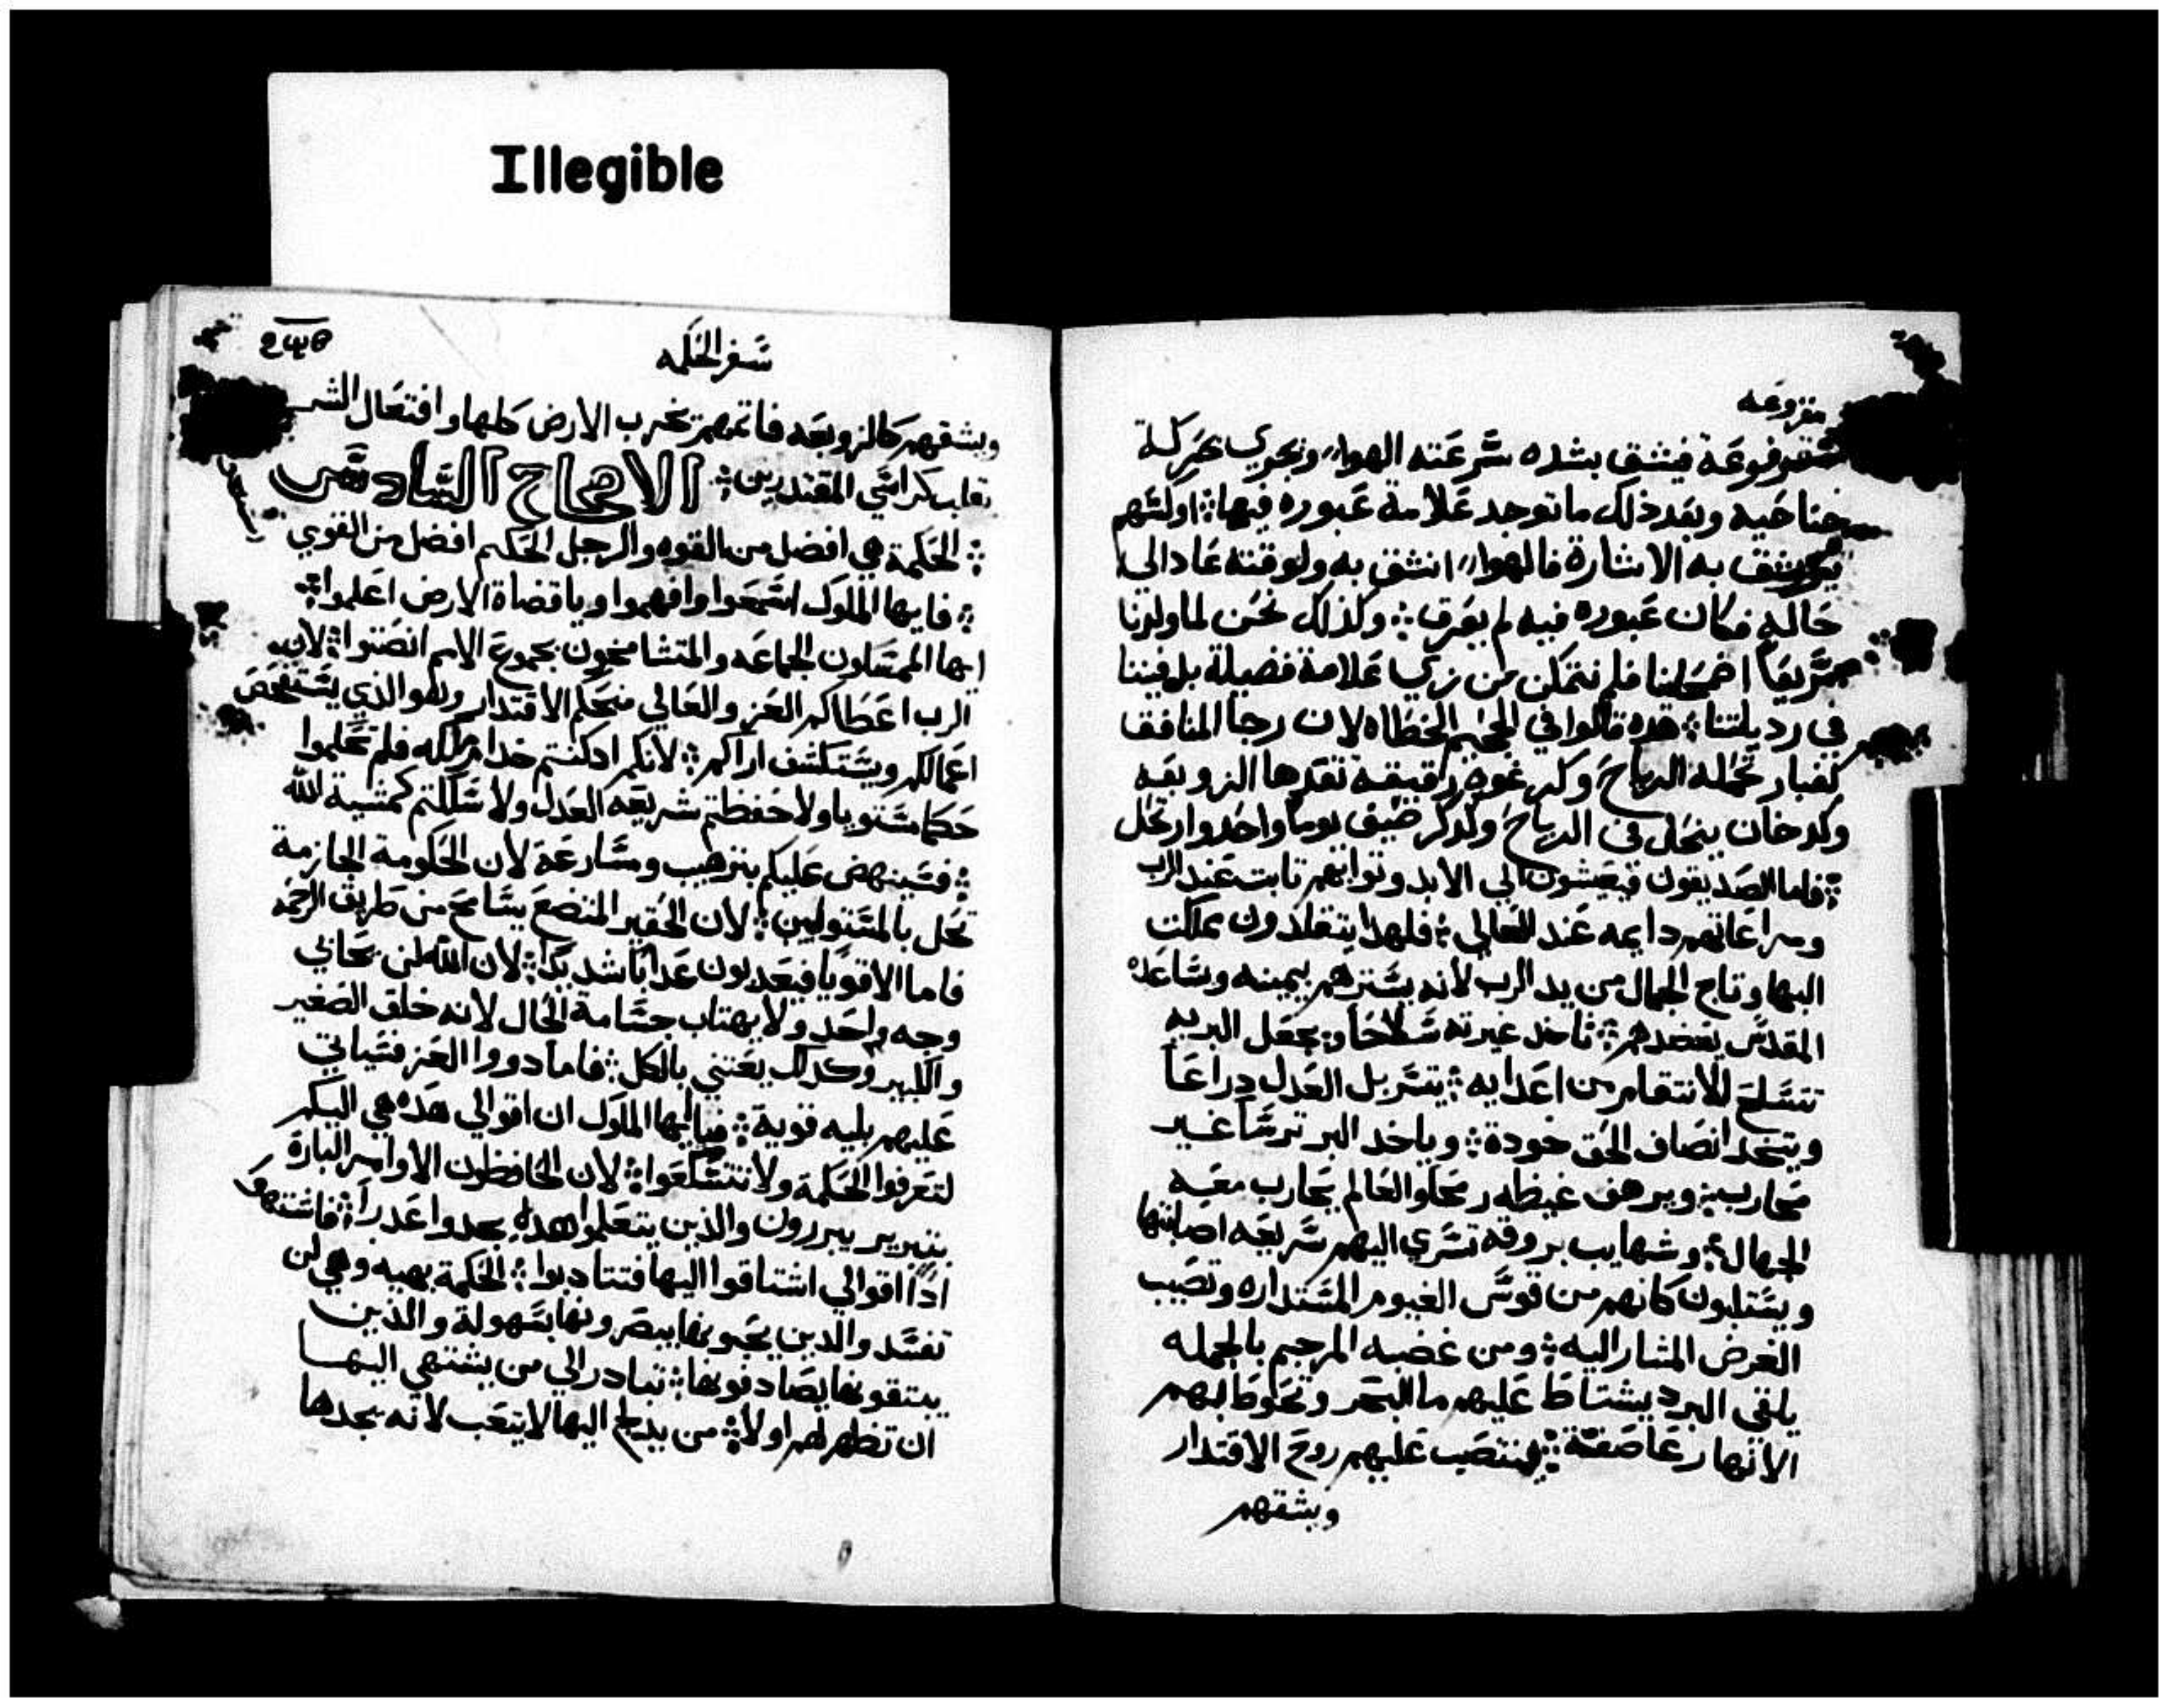 Illegible
مقروعه
فيشق بشده سرعته الهواء ويجري بحركة
جناحيه وبعد ذلك ما توجد علامة عبوره فيها ۞ او كسهم
يرشق به الاشارة فالهواء انشق به ولوقته عاد الي
حاله فكان عبوره فيه لم يعرف ۞ وكذلك نحن لما ولدنا
سريعا اضمحلينا فلم نتمكن من نري علامة فضيلة بل فنينا
في رديلتنا ۞ هده قالوا في الجحيم الخطاه لان رجا المنافق
كغبار تحمله الرياح وكرغوه رقيقة تقدرها الزوبعه
وكدخان ينحل في الرياح وكدكر ضيف يوما واحدا وارتحل
۞ فاما الصديقون فيعيشون الي الابد وتوابهم تابت عند الرب
ومراعاتهم دايمه عند العالي ۞ فلهدا يتقلدون مملكت
البها وتاج الجمال من يد الرب لانه يسترهم بيمينه وساعده
المقدس يعضدهم ۞ تاخد غيرته سلاحا ويجعل البريه
تتسلح للانتقام من اعدايه ۞ يتسربل العدل دراعا
ويتخد انصاف الحق خودة ۞ وياخد البر ترسا غير
محارب ۞ ويرهف غيظه رمحا والعالم يحارب معه
الجهال ۞ وشهايب بروقه تسري اليهم سريعه اصابتها
ويستلبون كانهم من قوس الغيوم المستداره وتصيب
الغرض المشار اليه ۞ ومن غضبه المرجم بالجمله
يلقي البرد يشتاط عليهم ما البحر وتحوط بهم
الانهار عاصفة ۞ فتنتصب عليهم روح الاقتدار
ويشقهم
سفر الحكمه
ويشقهم كالزوبعه فاتمهم تخرب الارض كلها وافتعال الشر
تقلب كراسي المقتدرين ۞ الاصحاح السادس
۞ الحكمة هي افضل من القوه والرجل الحكيم افضل من القوي
۞ فايها الملوك اسمعوا وافهموا ويا قضاة الارض اعلموا ۞
ايها الممسكون الجماعه والمتشامخون بجموع الامم انصتوا ۞ لان
الرب اعطاكم العز والعالي منحكم الاقتدار وهو الذي يستفحص
اعمالكم ويستكشف اراكم ۞ لانكم ادكنتم خدام ملكه فلم تحكموا
حكما مستويا ولا حفظتم شريعه العدل ولا سلكتم كمشية الله
۞ فسينهض عليكم بترهيب ومسارعة لان الحكومة الجازمة
تحل بالمستولين ۞ لان الحقير المتضع يسامح من طريق الرحمة
فاما الاقويا فيعدبون عدابا شديدا ۞ لان الله لن يحابي
وجه واحد ولا يهتاب جسامة الحال لانه خلق الصغير
والكبير وكدلك يعتني بالكل ۞ فاما دووا العز فسياتي
عليهم بليه قوية ۞ فيا ايها الملوك ان اقوالي هده هي اليكم
لتعرفوا الحكمة ولا تتسكعوا ۞ لان الحافظون الاوامر البارة
بتبرير يبررون والذين يتعلموا هده يجدوا عدرا ۞ فاشتهوا
ادا اقوالي اشتاقوا اليها فتتادبوا ۞ الحكمة بهيه وهي لن
تفسد والدين يحبونها يبصرونها بسهولة والذين
يبتغونها يصادفونها ۞ تبادر الي من يشتهي اليها
ان تظهر لهم اولا ۞ من يدلج اليها لا يتعب لانه يجدها